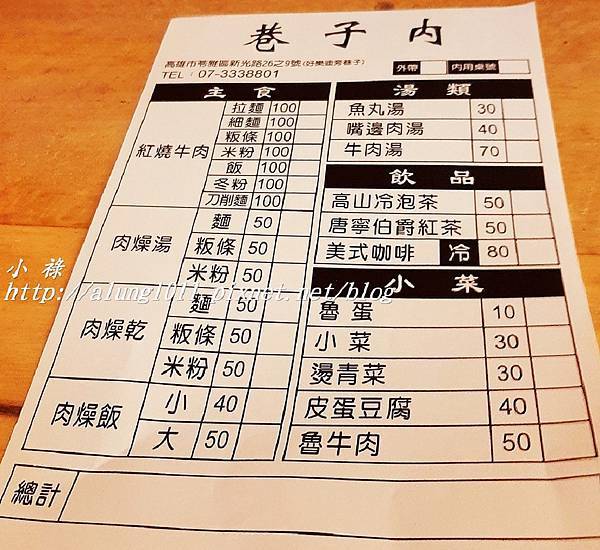 巷子內
高雄市苓雅區新光路26之9號(好樂迪旁巷子)
TEL：07-3338801
外帶 內用桌號
主食
紅燒牛肉
拉麵 100
細麵 100
粄條 100
米粉 100
飯 100
冬粉 100
刀削麵 100
肉燥湯
麵 50
粄條 50
米粉 50
肉燥乾
麵 50
粄條 50
米粉 50
肉燥飯
小 40
大 50
湯類
魚丸湯 30
嘴邊肉湯 40
牛肉湯 70
飲品
高山冷泡茶 50
唐寧伯爵紅茶 50
美式咖啡 冷 80
小菜
魯蛋 10
小菜 30
燙青菜 30
皮蛋豆腐 40
魯牛肉 50
總計
小祿
http://alung1011.pixnet.net/blog